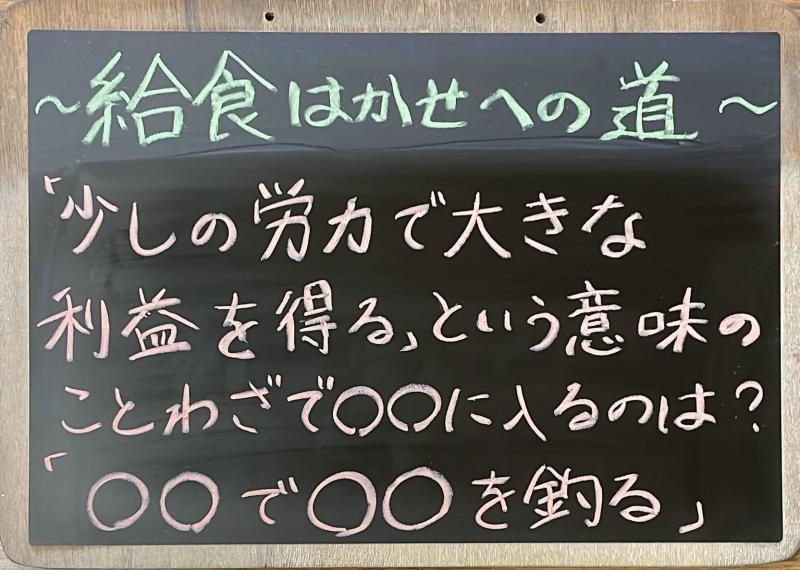 ～給食はかせへの道～
「少しの労力で大きな
利益を得る」という意味の
ことわざで〇〇に入るのは？
「〇〇で〇〇を釣る」